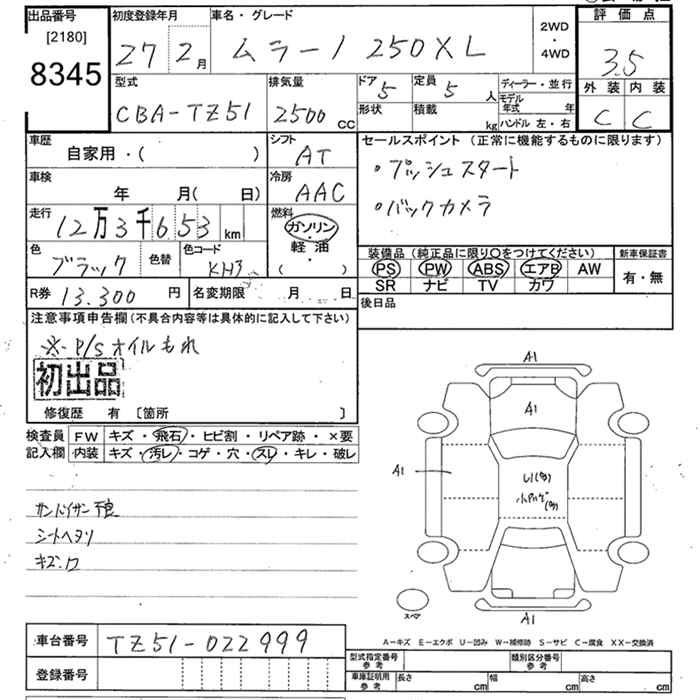 出品番号 初度登録年月 車名・グレード 2WD・4WD 評価点
[2180]
8345
27 2月 ムラーノ 250XL 3.5
型式 排気量 ドア 定員 ディーラー・並行 外装 内装
CBA-TZ51 2500cc 5 5人 C C
形状 積載 kg モデル年式 年
ハンドル 左・右
車歴 シフト セールスポイント (正常に機能するものに限ります)
自家用・( ) AT ・プッシュスタート
車検 冷房
年 月( 日) AAC ・バックカメラ
走行 燃料
12万3千653km ガソリン・軽油・( )
色 ブラック 色替 色コード KH3
装備品 (純正品に限り○をつけてください) 新車保証書
PS PW ABS エアB AW 有・無
SR ナビ TV カワ
R券 13.300 円 名変期限 月 日 後日品
注意事項申告欄(不具合内容等は具体的に記入して下さい)
※P/Sオイルもれ
初出品
修復歴 有 [箇所 ]
検査員 FW キズ・飛石・ヒビ割・リペア跡・×要
記入欄 内装 キズ・汚レ・コゲ・穴・スレ・キレ・破レ
シートヘタリ
A1
A1
A1
A1
スペア
A-キズ E-エクボ U-凹み W-補修跡 S-サビ C-腐食 XX-交換済
車台番号 TZ51-022999
登録番号
型式指定番号 参考 類別区分番号 参考
車庫証明用 参考 長さ cm 幅 cm 高さ cm